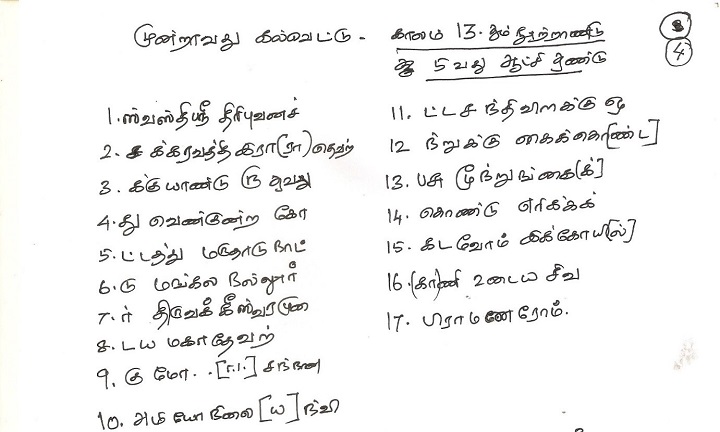 மூன்றாவது கல்வெட்டு - காலம் 13-ஆம் நூற்றாண்டு
5 வது ஆட்சி ஆண்டு
4
1. ஸ்வஸ்திஸ்ரீ திரிபுவனச்
2. சக்கரவத்திகரா(ரா)தெவற்
3. க்கு யாண்டு ரு ஆவது
4. து வெண்குன்ற கோ
5. ட்டத்து மருதாடு நாட்
6. டு மங்கல நல்லூர்
7. ர் திருவக்கீஸ்வரமுடை
8. டய மகாதேவற்
9. கு மோ . . [ரா.] சந்தன
10. அமியோநிலை [ய] ந்வி
11. ட்டசந்திவிளக்கு ஒ
12 ந்றுக்கு கைக்கொ[ண்ட]
13. பசு மூன்றுங்கை[க்]
14. கொண்டு எரிக்கக்
15. கடவோம் இக்கோயி[ல்]
16. (கா)ணி உடைய சிவ
17. பிராமணரோம்.